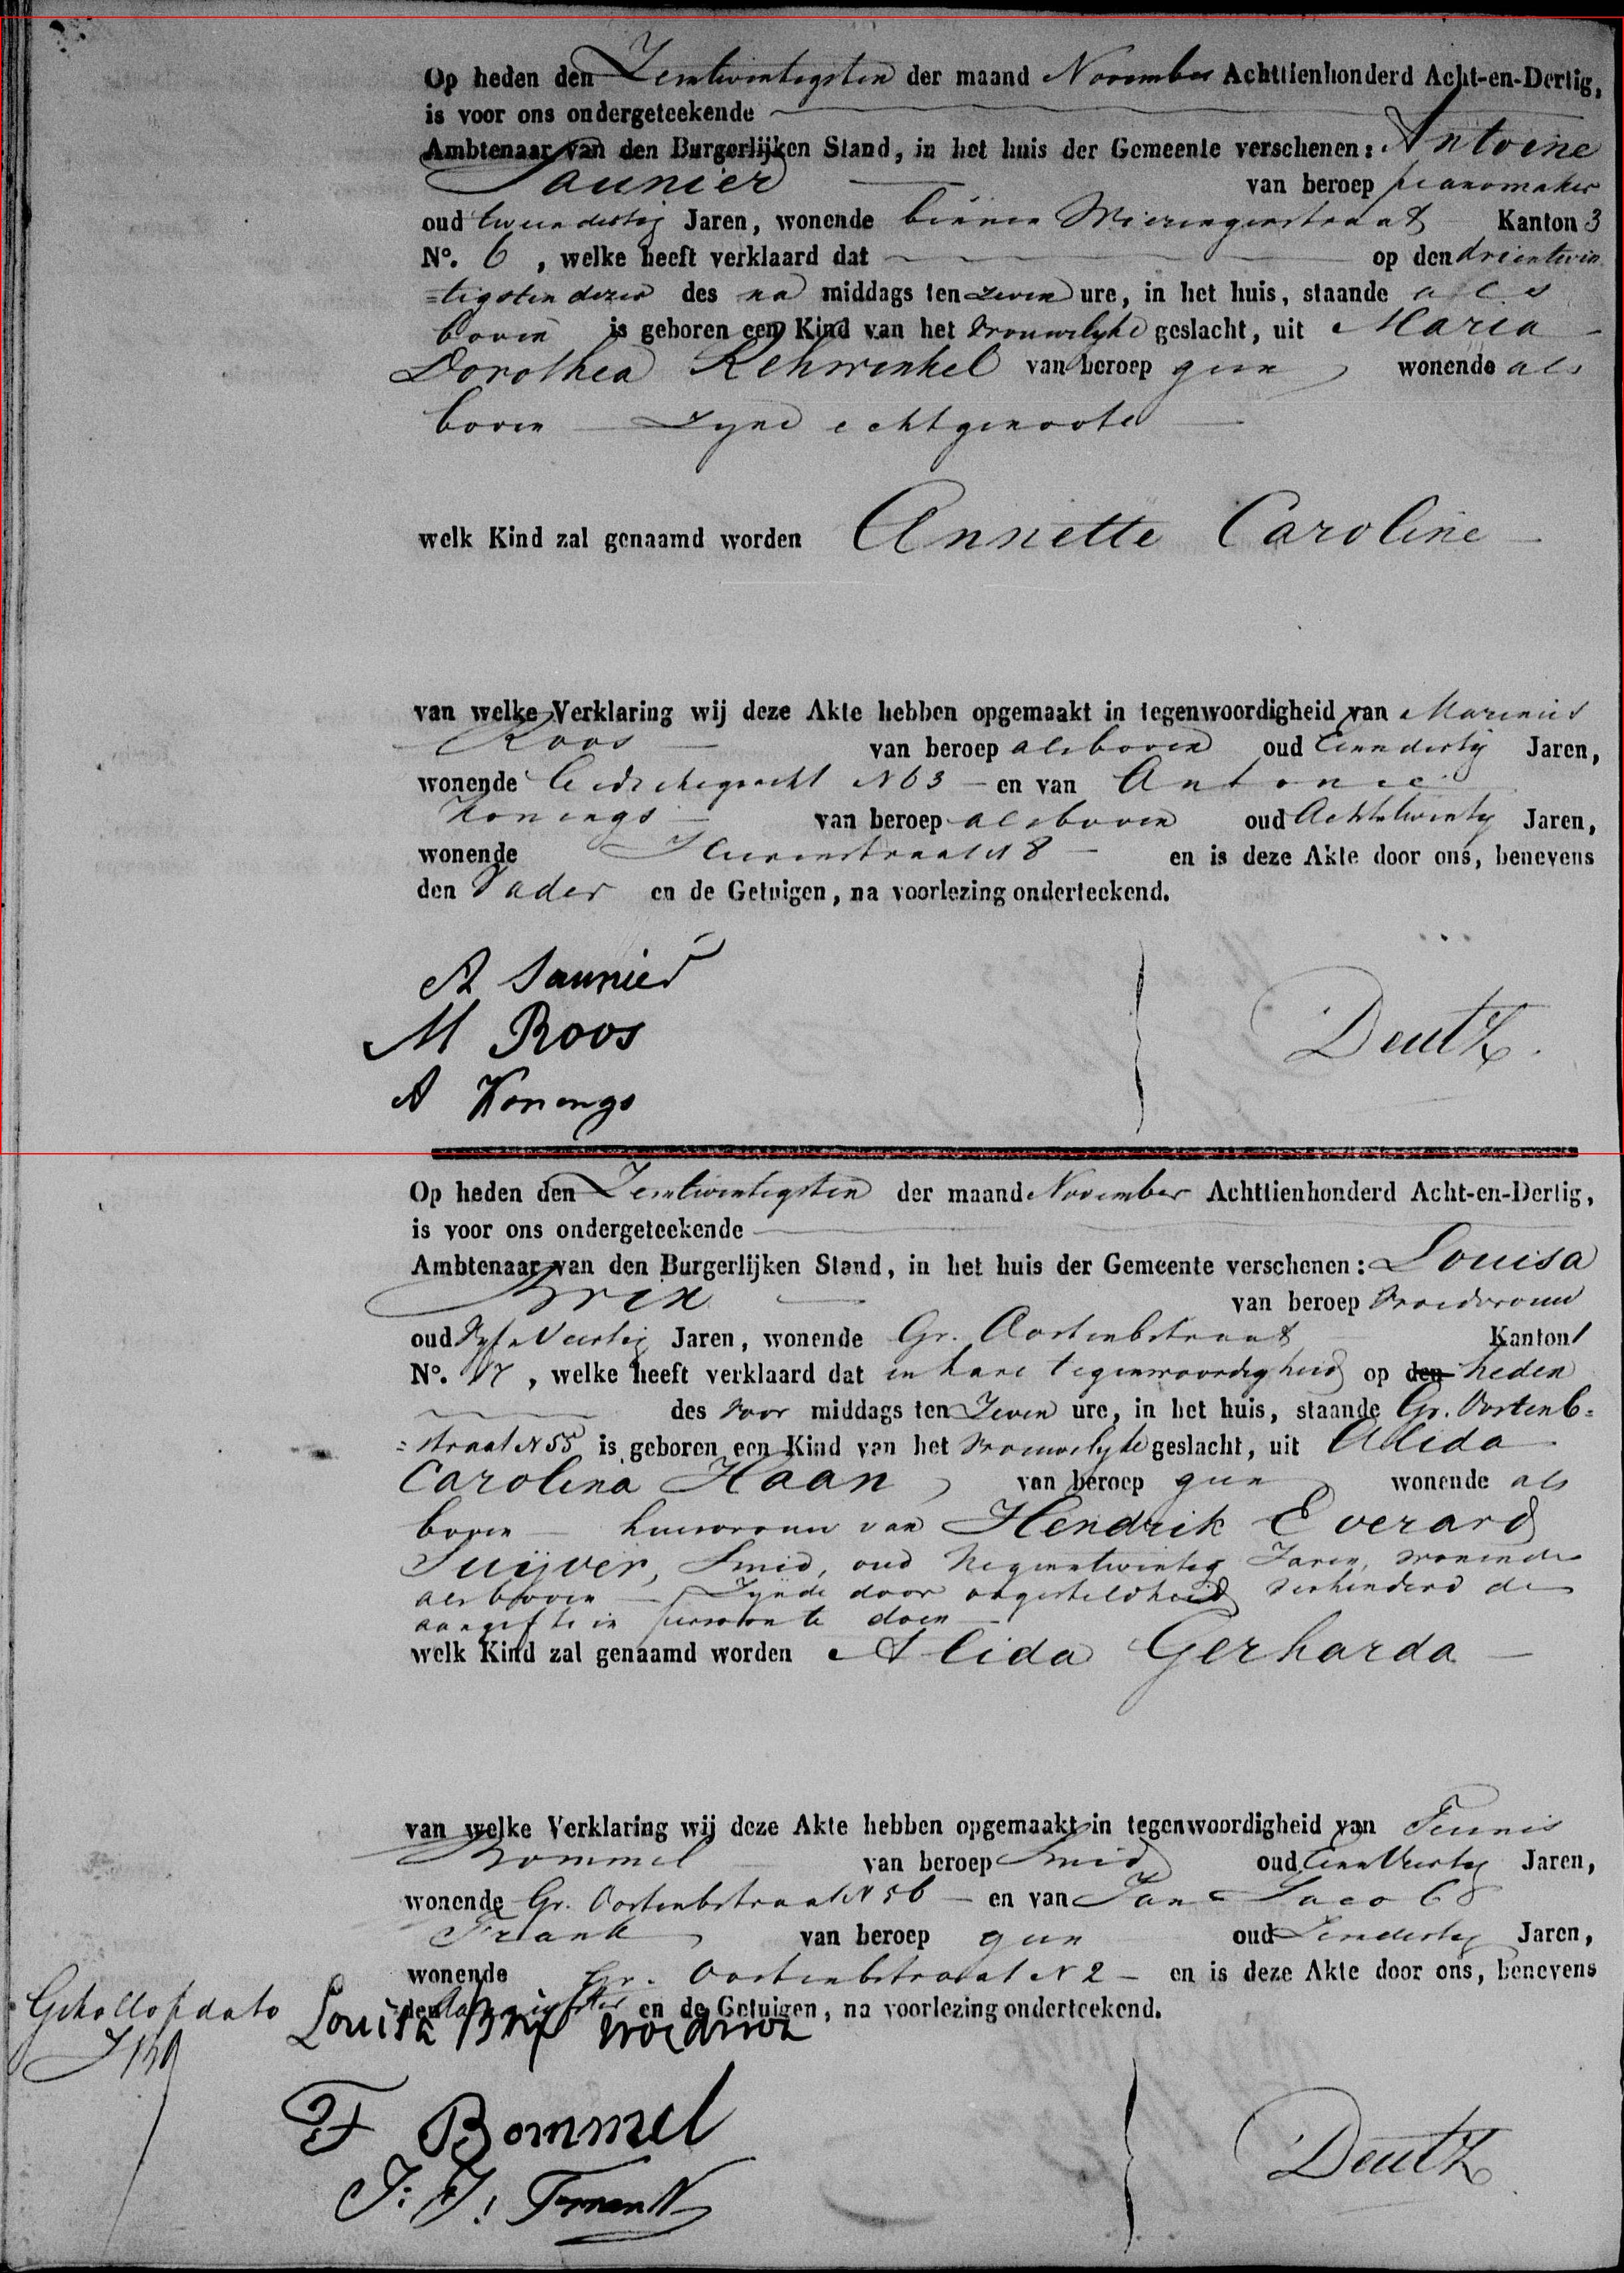 Op heden den Zesentwintigsten der maand November Achttienhonderd Acht-en-Dertig,
is voor ons ondergeteekende
Ambtenaar van den Burgerlijken Stand, in het huis der Gemeente verschenen: Antoine
Saunier van beroep pianomaker
oud tweendertig Jaren, wonende binnen Wieringerstraat Kanton 3
N°. 6, welke heeft verklaard dat op den drieentwin
=tigsten dezer des na middags ten zeven ure, in het huis, staande als
boven is geboren een Kind van het vrouwelyke geslacht, uit Maria
Dorothea Rehwinkel van beroep geen wonende als
boven zyne echtgenoote
welk Kind zal genaamd worden Annette Caroline
van welke Verklaring wij deze Akte hebben opgemaakt in tegenwoordigheid van Marinus
Roos van beroep als boven oud Eenendertig Jaren,
wonende Leidschegracht N 63 en van Antonie
Konings van beroep als boven oud Achtentwintig Jaren,
wonende N 8 en is deze Akte door ons, benevens
den Vader en de Getuigen, na voorlezing onderteekend.
A Saunier
M Roos
A Konings
Deutz.
Op heden den Zesentwintigsten der maand November Achttienhonderd Acht-en-Dertig,
is voor ons ondergeteekende
Ambtenaar van den Burgerlijken Stand, in het huis der Gemeente verschenen: Louisa
Brix van beroep Vroedvrouw
oud Vyf Veertig Jaren, wonende Gr. Oostenbstraat Kanton 1
N°. 17, welke heeft verklaard dat in hare tegenwoordigheid op den heden
des voor middags ten Zeven ure, in het huis, staande Gr. Oostenb=
=straat N 55 is geboren een Kind van het vrouwelyke geslacht, uit Alida
Carolina Haan, van beroep geen wonende als
boven huisvrouw van Hendrik Everard
Suijver, Smid, oud Negenentwintig Jaren, wonende
als boven Zynde door ongesteldheid verhinderd de
aangifte in persoon te doen
welk Kind zal genaamd worden Alida Gerharda
van welke Verklaring wij deze Akte hebben opgemaakt in tegenwoordigheid van Teunis
Bommel van beroep Smid oud Een Veertig Jaren,
wonende Gr. Oostenbstraat N 56 en van Jan Jacob
Frank van beroep geen oud Jaren,
wonende Gr. Oostenbstraat N 2 en is deze Akte door ons, benevens
den Aangifster en de Getuigen, na voorlezing onderteekend.
Louisa Brix vroedvrou
T Bommel
J: J: Frank
Deutz